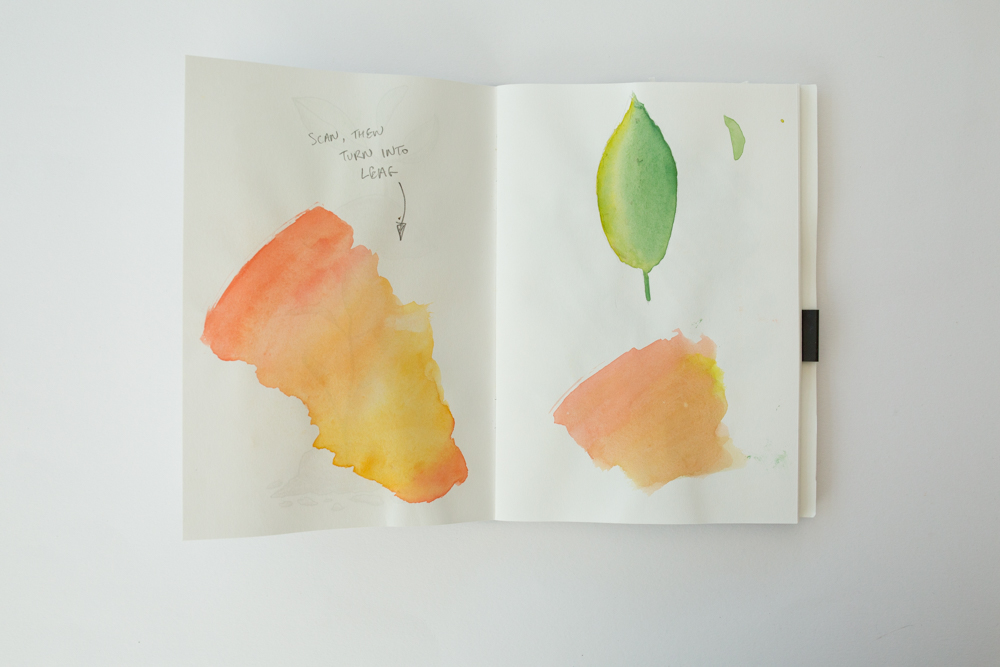 SCAN, THEN
TURN INTO
LEAF